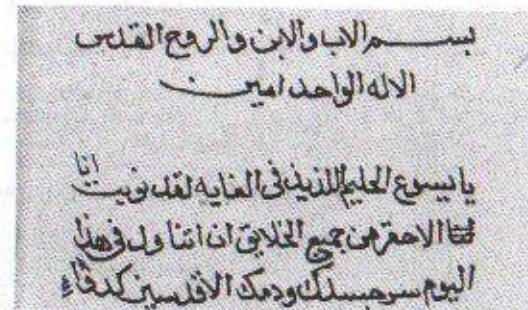 بسم الاب والابن والروح القدس
الاله الواحد امين
يا يسوع الحليم اللذيذ في الغايه لقد نويت انا
الاحقر من جميع الخلايق ان اتناول في هذا
اليوم سر جسدك ودمك الاقدسين كدفاء